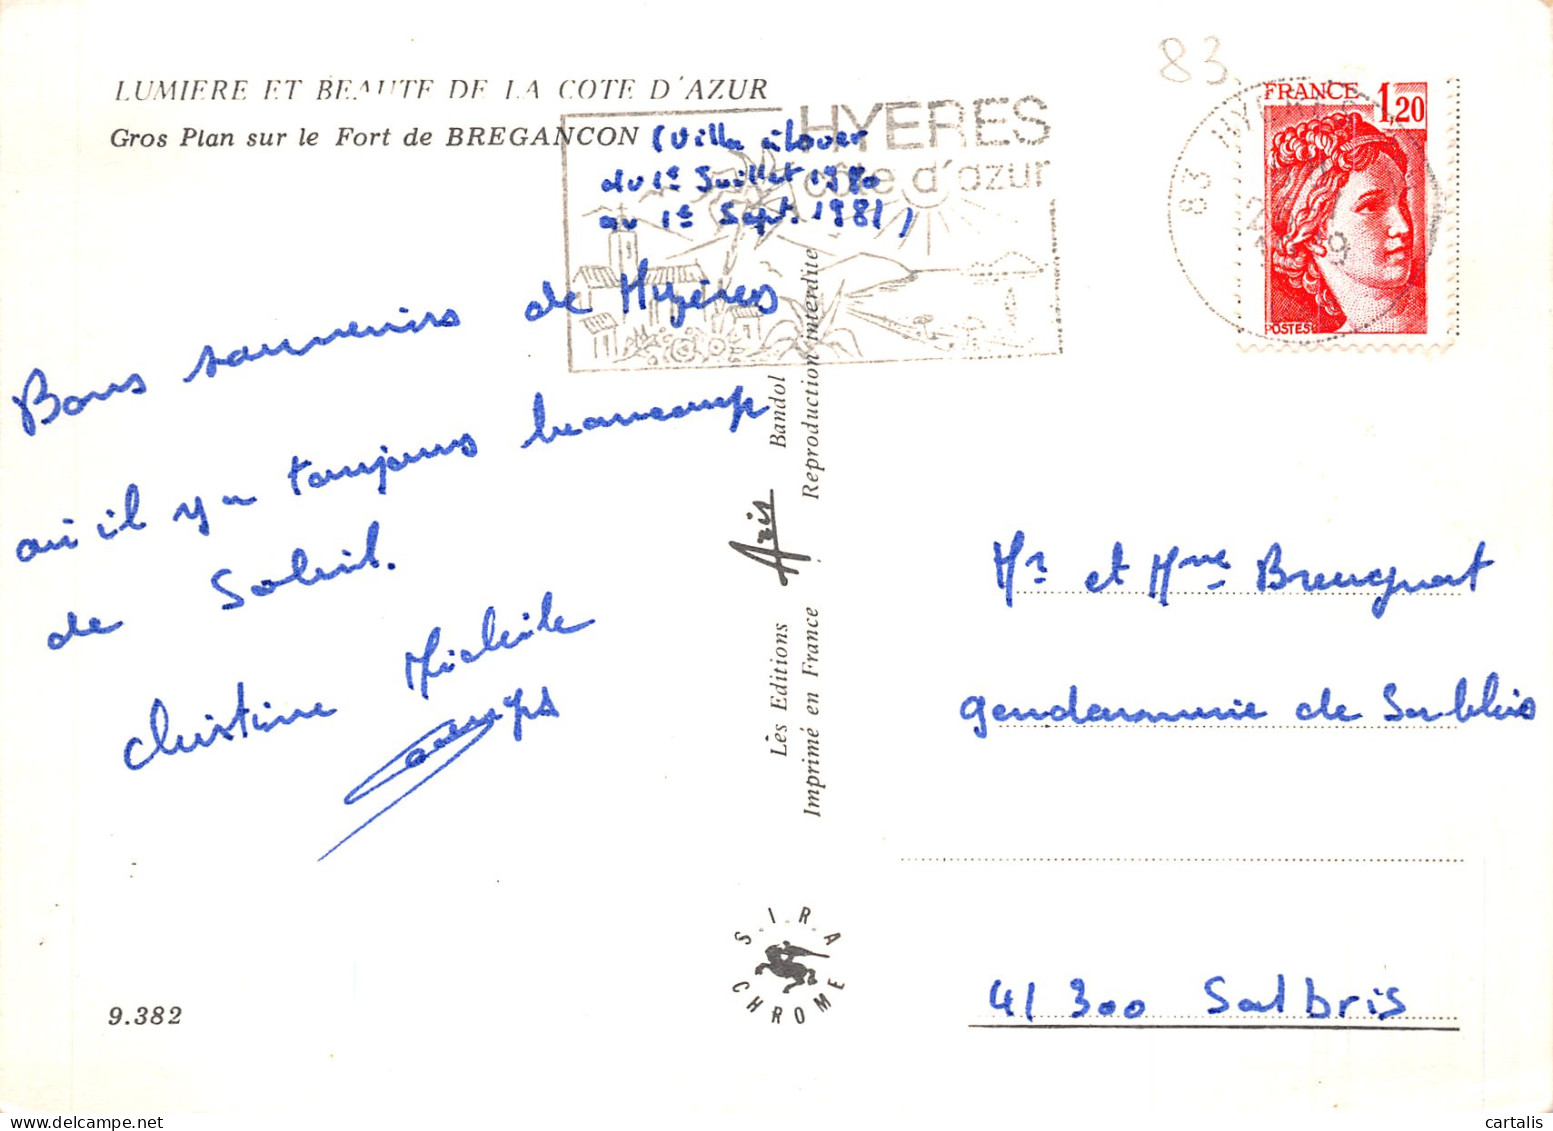 83
LUMIERE ET BEAUTE DE LA COTE D'AZUR
Gros Plan sur le Fort de BREGANCON
(Villa à louer
du 1er Juillet 1980
au 1er Sept. 1981)
HYERES
côte d'azur
83 HYERES
FRANCE 1,20
POSTES
Bons souvenirs de Hyères
où il y a toujours beaucoup
de Soleil.
Christine Michèle
Les Editions Aris Bandol
Imprimé en France Reproduction interdite
Mr et Mme Breugnot
gendarmerie de Salbris
41 300 Salbris
SIRA
CHROME
9.382
cartalis